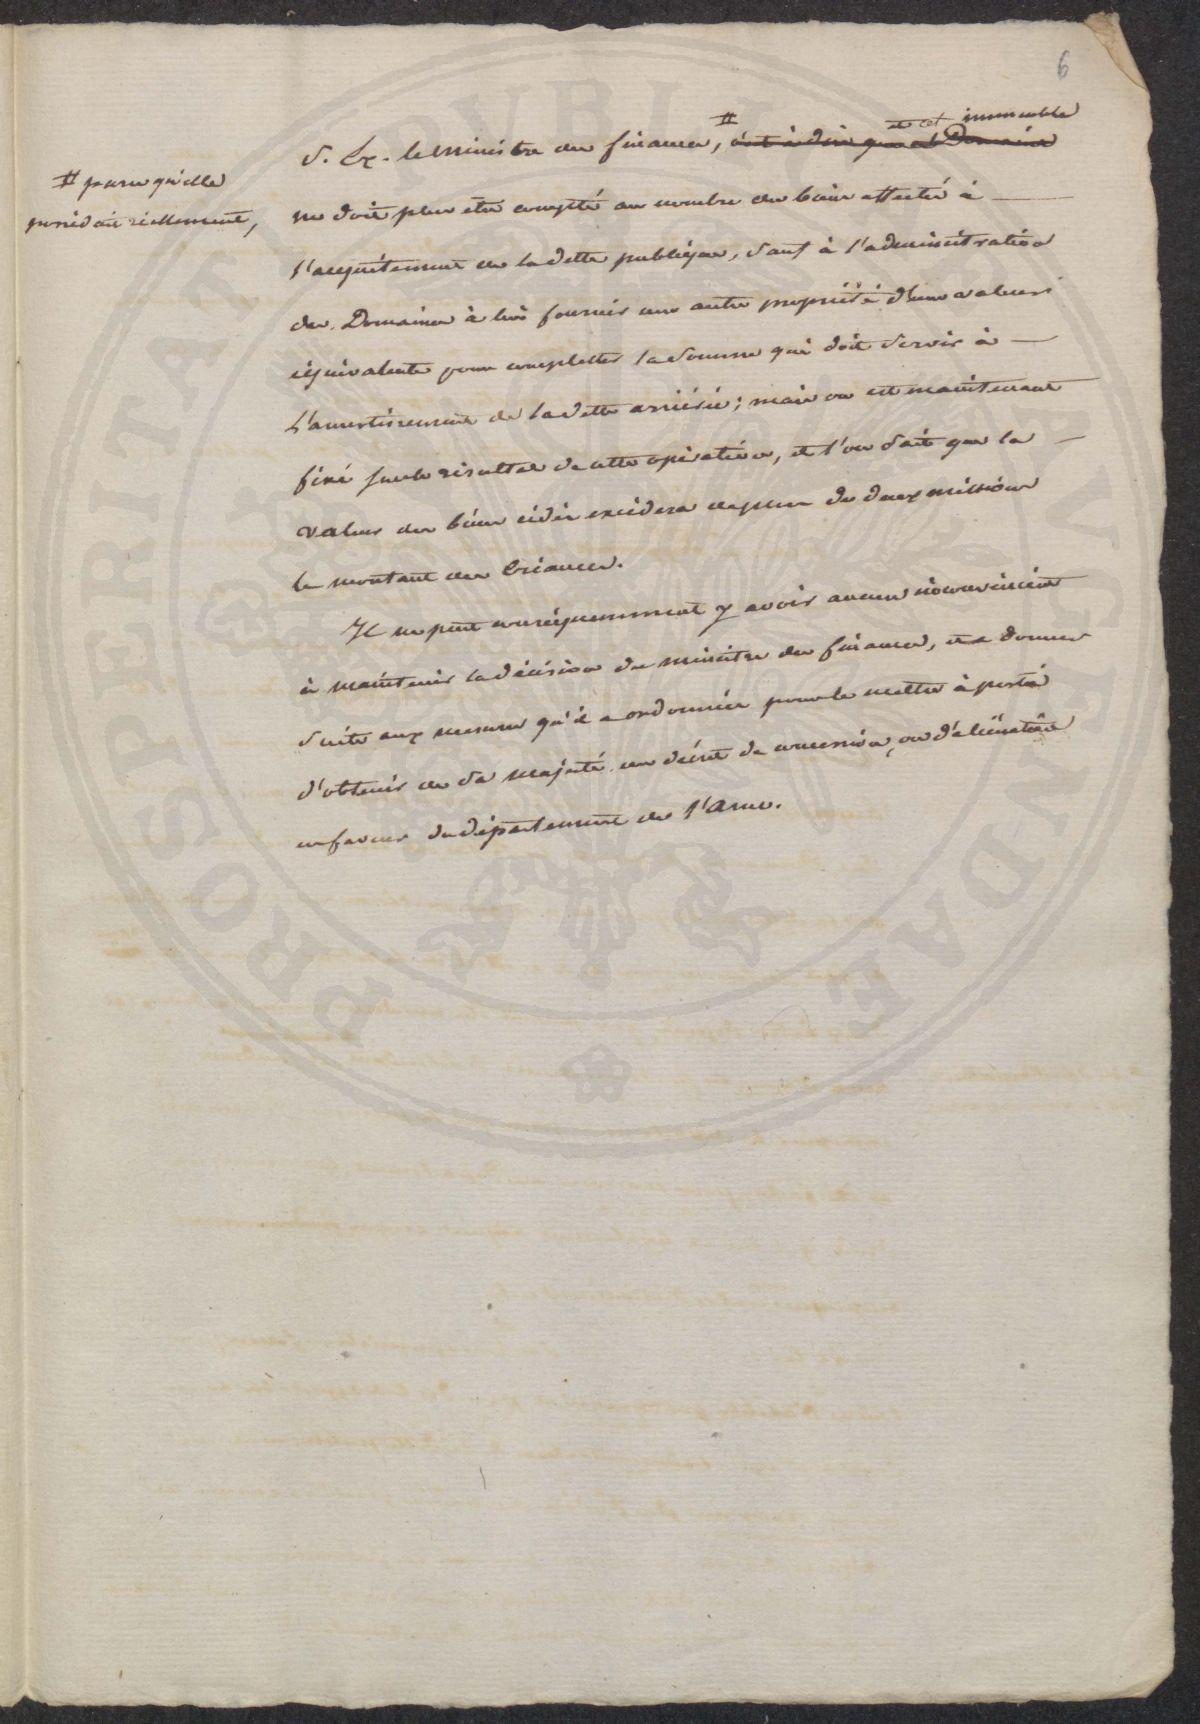 6
S. Ex. le Ministre des finances, # c'est à dire que cet Domaine
et cet immeuble
# parce qu'elle
possédait réellement,
ne doit plus etre compté au nombre des biens affectés à
l'acquittement de la dette publique, sauf à l'administration
des Domaines à lui fournir une autre propriété d'une valeur
équivalente pour completter la somme qui doit servir à
l'amortissement de la dette arriérée; mais on est maintenant
fixé sur le résultat de cette opération, et l'on sait que la
valeur des biens cédés excédera de plus de deux millions
le montant des Créances.
Il ne peut conséquemment y avoir aucun inconvénient
à maintenir la décision du ministre des finances, et a donner
suite aux mesures qu'il a ordonnées pour le mettre à portée
d'obtenir de Sa Majesté un décret de concession, ou d'aliénation
en faveur du département de l'Arno.
PROSPERITATI PVBLICAE